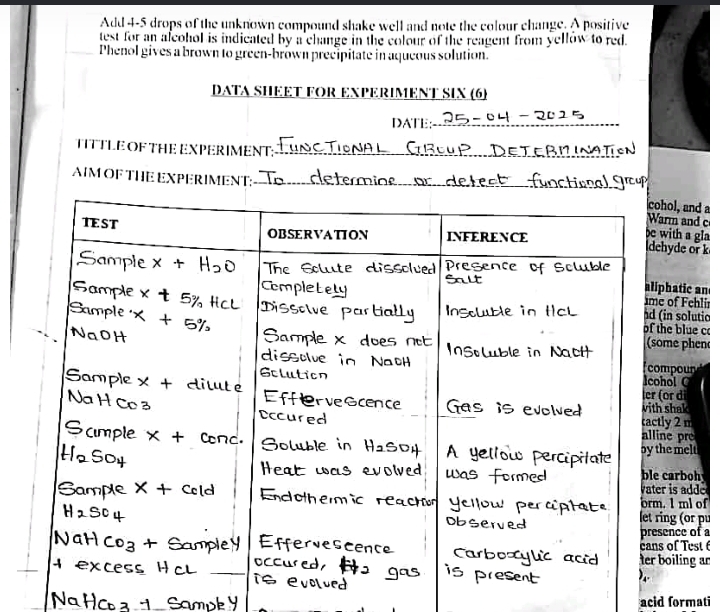 Add 4-5 drops of the unknown compound shake well and note the colour change. A positive
test for an alcohol is indicated by a change in the colour of the reagent from yellow to red.
Phenol gives a brown to green-brown precipitate in aqueous solution.
DATA SHEET FOR EXPERIMENT SIX (6)
DATE: 25-04-2025
TITTLE OF THE EXPERIMENT: FUNCTIONAL GROUP DETERMINATION
AIM OF THE EXPERIMENT: To determine or detect functional group
TEST OBSERVATION INFERENCE
Sample x + H2O
The Solute dissolved
Completely
Presence of Soluble
Salt
Sample x + 5% HCL
Dissolve partially
Insoluble in HCL
Sample x + 5%
NaOH
Sample x does not
dissolve in NaOH
Solution
Insoluble in NaOH
Sample x + dilute
NaHCO3
Efftervescence
Occured
Gas is evolved
Sample x + conc.
H2SO4
Soluble in H2SO4
Heat was evolved
A yellow percipitate
was formed
Sample x + Cold
H2SO4
Endothermic reaction
Yellow percipitate
Observed
NaHCO3 + Sample Y
+ excess HCL
Effervescence
occured, H2 gas
is evolved
Carboxylic acid
is present
NaHCO3 + Sample Y
cohol, and a
Warm and c
be with a gla
ldehyde or k
aliphatic an
ume of Fehlin
id (in solutio
of the blue co
(some pheno
compound
lcohol
ter (or di
with shak
actly 2 m
alline pre
by the melt
ble carboh
water is adde
orm. 1 ml of
let ring (or pu
presence of a
cans of Test 6
ter boiling an
acid formati